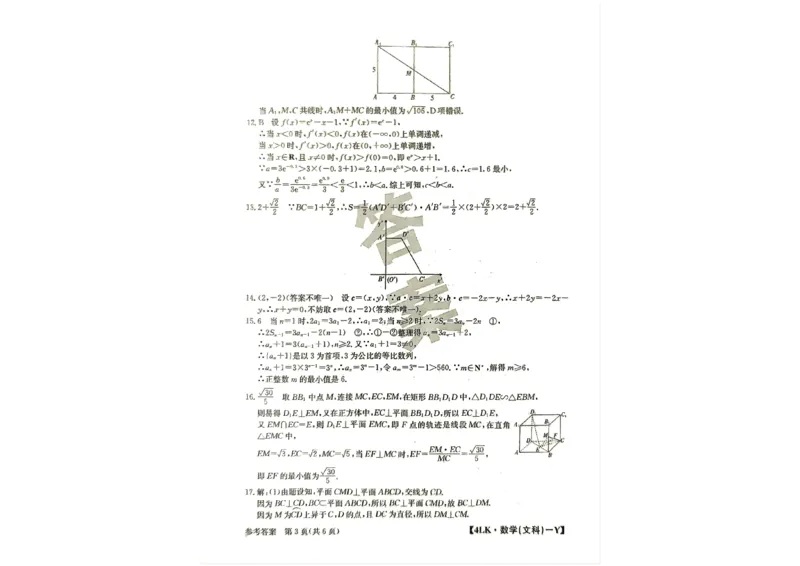 A₁ B₁ C₁
5 M
A 4 B 5 C
当 A₁,M,C 共线时,A₁M+MC 的最小值为 √106,D 项错误.
12.B 设 f(x)=eˣ-x-1,∵f′(x)=eˣ-1,
∴当 x<0 时,f′(x)<0,f(x)在(-∞,0)上单调递减,
当 x>0 时,f′(x)>0,f(x)在(0,+∞)上单调递增,
∴当 x∈R,且 x≠0 时,f(x)>f(0)=0,即 eˣ>x+1.
∵a=3e⁻⁰·³>3×(-0.3+1)=2.1,b=e⁰·⁶>0.6+1=1.6,∴c=1.6 最小,
又∵b/a=e⁰·⁶/3e⁻⁰·³=e⁰·⁹/3<e/3<1,∴b<a.综上可知,c<b<a.
13.2+√2/2 ∵BC=1+√2/2,∴S=1/2(A′D′+B′C′)·A′B′=1/2×(2+√2/2)×2=2+√2/2.
y′
A′ D′
B′ (O′) C′ x′
14.(2,-2)(答案不唯一) 设 c=(x,y),∵a·c=x+2y,b·c=-2x-y,∴x+2y=-2x-
y,∴x+y=0,不妨取 c=(2,-2)(答案不唯一).
15.6 当 n=1 时,2a₁=3a₁-2,∴a₁=2;当 n≥2 时,∵2Sₙ=3aₙ-2n ①,
∴2Sₙ₋₁=3aₙ₋₁-2(n-1) ②,∴①-②整理得 aₙ=3aₙ₋₁+2,
∴aₙ+1=3(aₙ₋₁+1),n≥2.又∵a₁+1=3≠0,
∴{aₙ+1}是以 3 为首项,3 为公比的等比数列,
∴aₙ+1=3×3ⁿ⁻¹=3ⁿ,∴aₙ=3ⁿ-1,令 aₘ=3ᵐ-1>560.∵m∈N*,解得 m≥6,
∴正整数 m 的最小值是 6.
16.√30/5 取 BB₁ 中点 M,连接 MC,EC,EM,在矩形 BB₁D₁D 中,△D₁DE∽△EBM,
则易得 D₁E⊥EM,又在正方体中,EC⊥平面 BB₁D₁D,所以 EC⊥D₁E,
又 EM∩EC=E,则 D₁E⊥平面 EMC,即 F 点的轨迹是线段 MC,在直角
△EMC 中,
EM=√3,EC=√2,MC=√5,当 EF⊥MC 时,EF=EM·EC/MC=√30/5,
即 EF 的最小值为√30/5.
D₁ C₁
B₁
M
D F C
E
A B
17.解:(1)由题设知,平面 CMD⊥平面 ABCD,交线为 CD.
因为 BC⊥CD,BC⊂平面 ABCD,所以 BC⊥平面 CMD,故 BC⊥DM.
因为 M 为CD上异于 C,D 的点,且 DC 为直径,所以 DM⊥CM.
参考答案 第 3 页(共 6 页)
【4LK·数学(文科)-Y】
答案